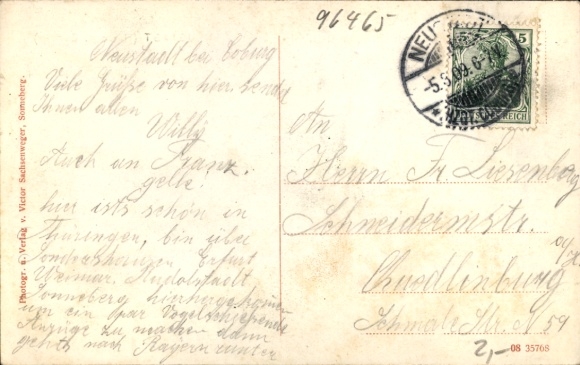 96465
Neustadt bei Coburg
Viele Grüße von hier sendet
Ihnen allen
Willy
Auch an Franz.
gelle!
hier ists schön in
Thüringen, bin über
Sondershausen Erfurt
Weimar Rudolstadt
Sonneberg hierhergekommen
um ein par Vogelschiessende
Anzüge zu machen dann
gehts nach Bayern runter
Photogr. u. Verlag v. Victor Sachsenweger, Sonneberg.
NEUS
-5.8.09.6-7
5
5
REICH
An
Herrn Fr. Liesenberg
Schneidermstr.
Quedlinburg
Schmale Str. N 59
2,-
08 35768